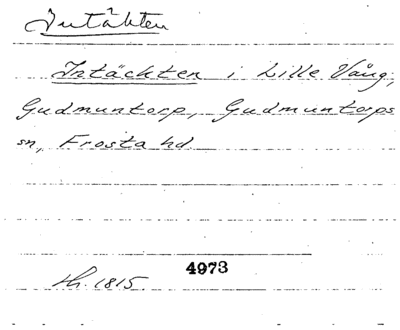 Intäkten
Intäckten i Lille Vång,
Gudmuntorp, Gudmuntorps
sn, Frosta hd
4973
Lh. 1815.